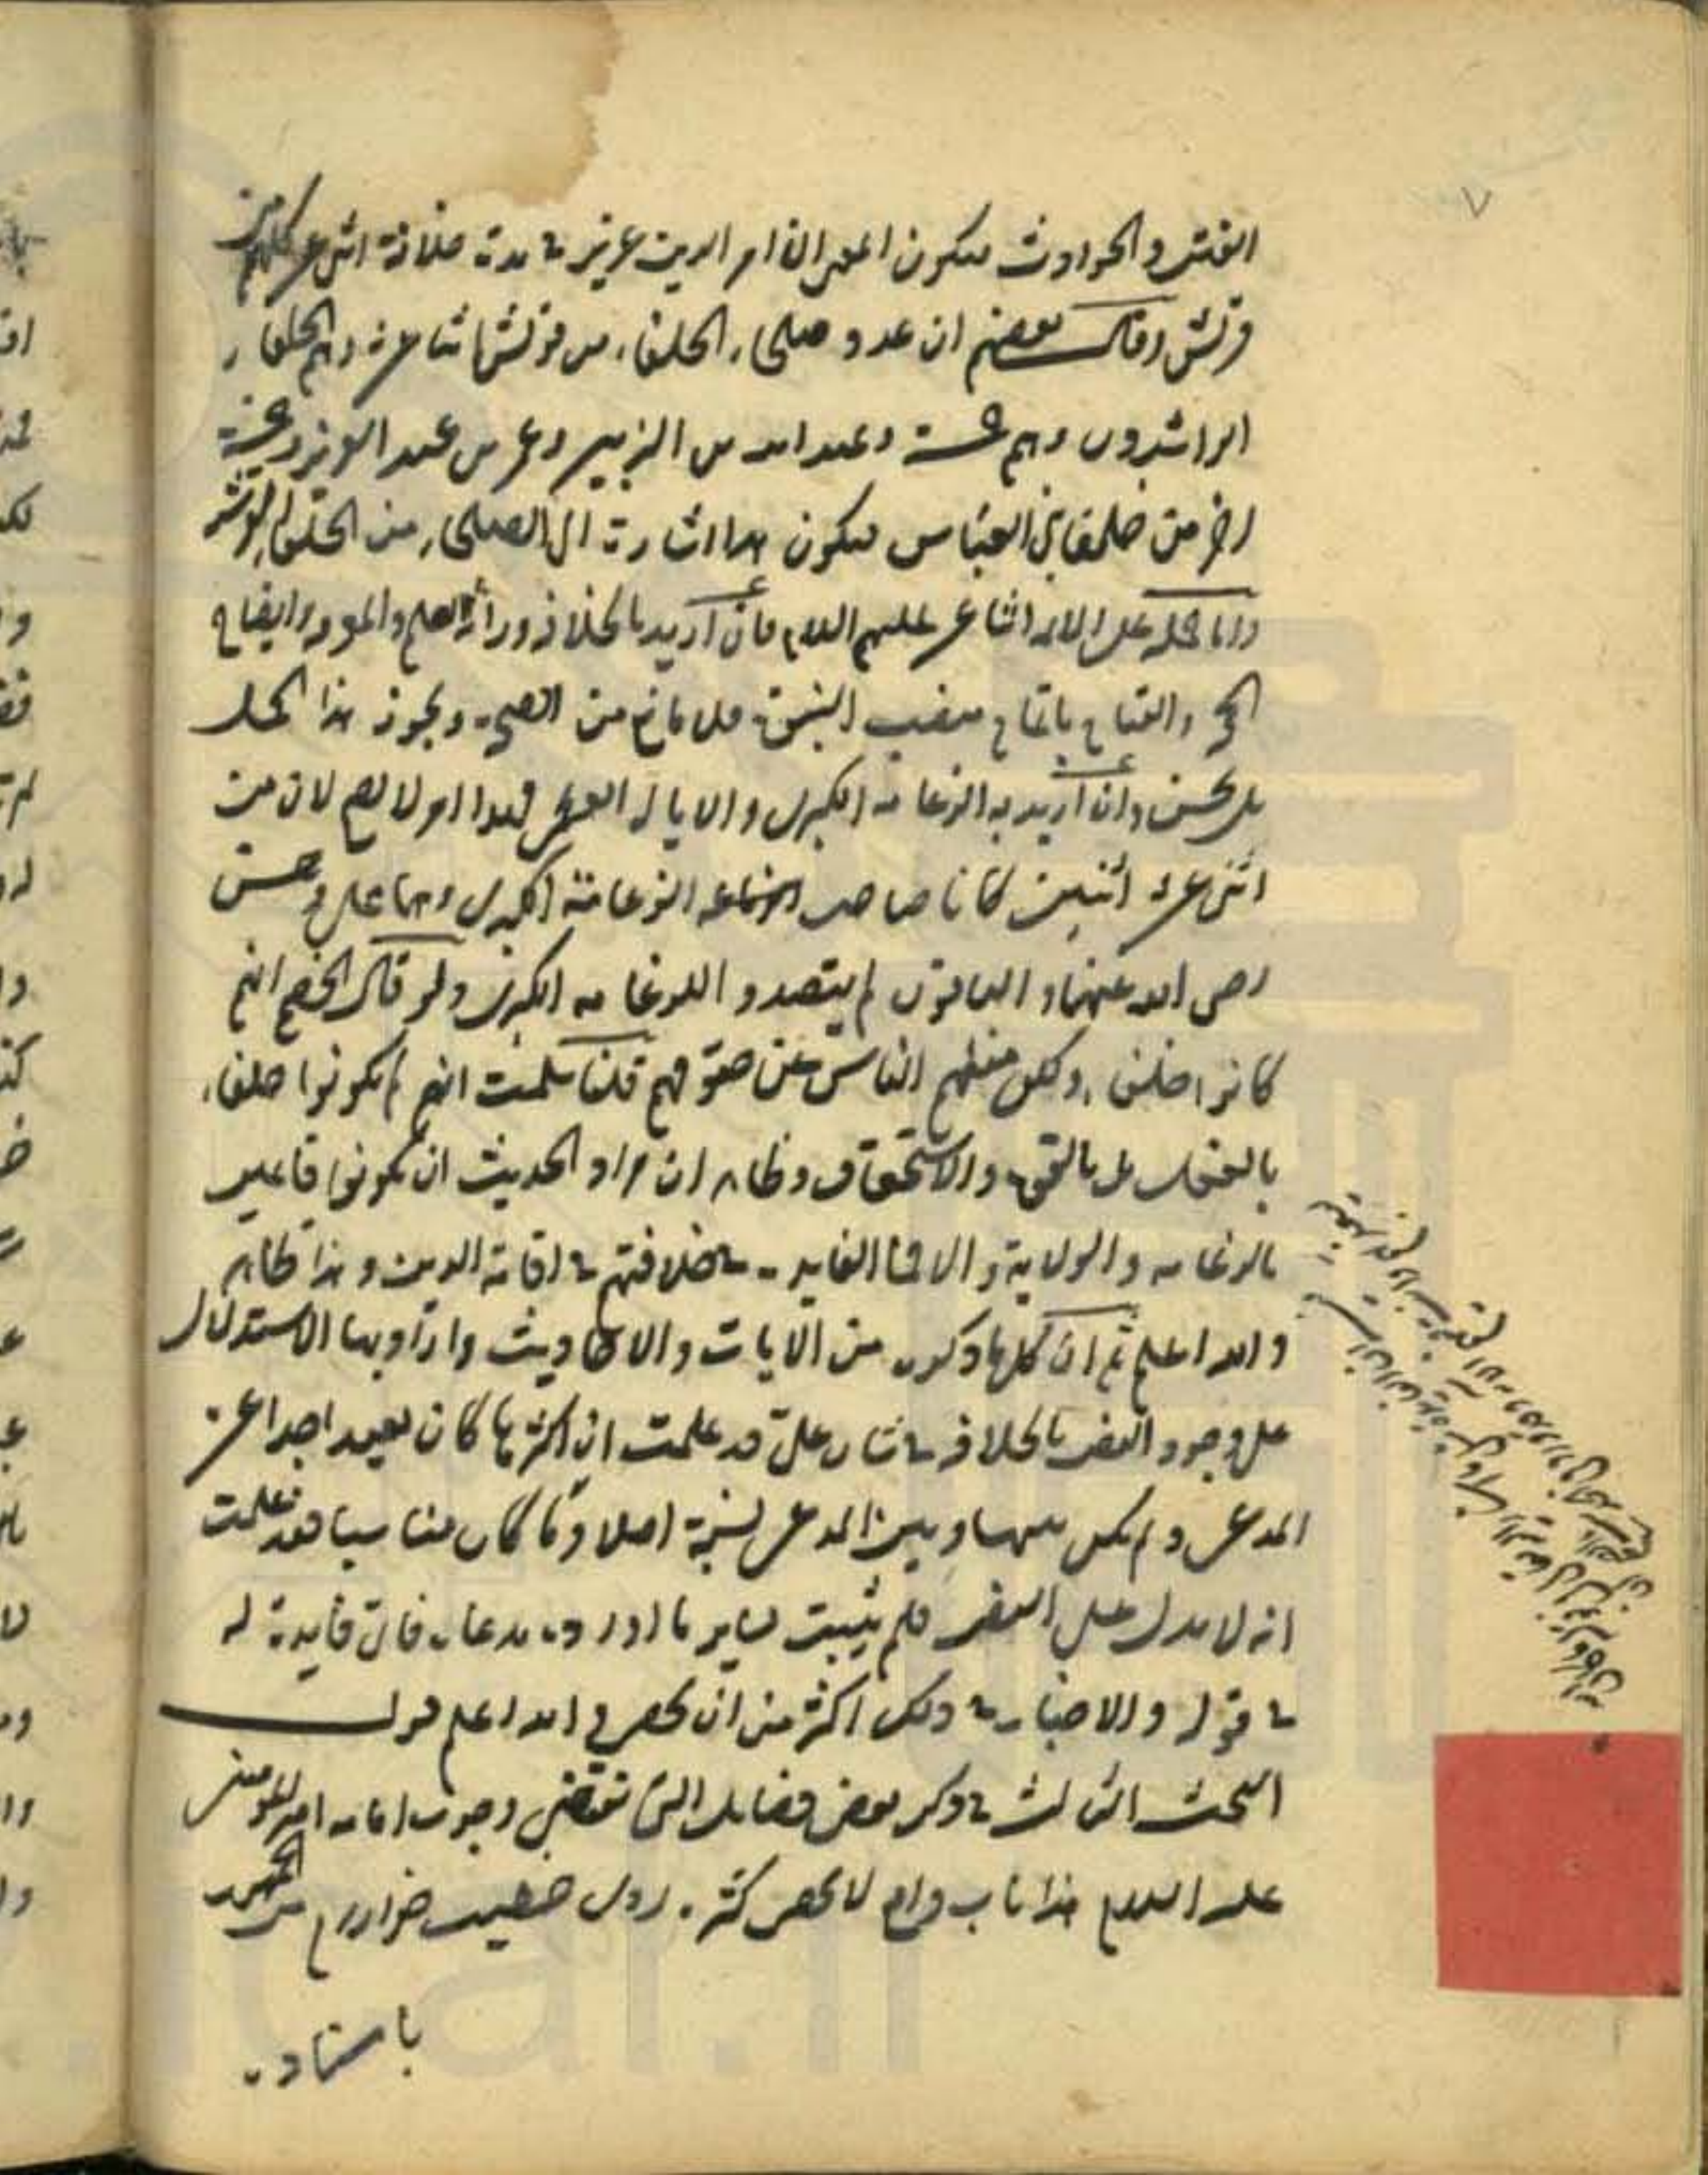 ٧
الفتن والحوادث فيكون المعنى ان امر الدين عزيز في مدة خلافة اثنى عشر كلهم من
قريش وقال بعضهم ان عدد صلحاء الخلفاء من قريش اثنا عشر وهم الخلفاء
الراشدون وهم خمسة وعبد الله بن الزبير وعمر بن عبد العزيز وخمسة
اخر من خلفاء بنى العباس فيكون هذا اشارة الى الصلحاء من الخلفاء القرشية
واما حمله على الائمة الاثنا عشر عليهم السلام فان اريد بالخلافة وراثة العلم والمعرفة وايضاح
الحجة والقيام باتمام منصب النبوة فلا مانع من الصحة ويجوز هذا الحمل
بل يحسن وان اريد به الزعامة الكبرى والايالة العظمى فهذا امر لا يصح لان من
اثنى عشر اثنين كانا صاحب الزعامة الكبرى وهما على وحسن
رضى الله عنهما والباقون لم يتصدوا للزعامة الكبرى ولو قال الخصم انهم
كانوا خلفاء ولكن منعهم الناس عن حقوقهم قلنا سلمت انهم لم يكونوا خلفاء
بالفعل بل بالقوة والاستحقاق وظاهر ان مراد الحديث ان يكونوا قائمين
بالزعامة والولاية والا فما الفايدة في خلافتهم في اقامة الدين وهذا ظاهر
والله اعلم ثم ان كلما ذكره من الايات والاحاديث واراد بها الاستدلال
على وجود النص بالخلافة في شان على قد علمت ان اكثرها كان بعيدا جدا عن
المدعى ولم يكن بينها وبين المدعى نسبة اصلا وما كان مناسبا فقد علمت
انه لا يدل على النص فلم يثبت بساير ما اورده مدعاه فاى فايدة له
في قوله والاخبار في ذلك اكثر من ان يحصى والله اعلم قوله
المبحث الثالث في ذكر بعض فضايله التى تقتضى وجوب امامة امير المؤمنين
عليه السلام هذا باب واسع لا يحصى كثرة روى خطيب خوارزم من الجمهور
باسناده